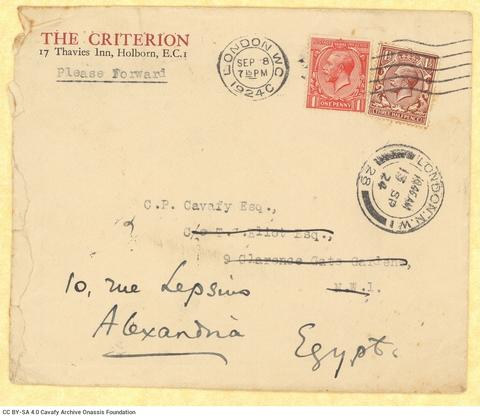 THE CRITERION
17 Thavies Inn, Holborn, E.C.1
Please Forward
LONDON W.C.
SEP 8
7 15 PM
1924
C
ONE PENNY
THREE HALFPENCE
LONDON. N.W.1
10 45 AM
13 SP
24
28
C.P. Cavafy Esq.,
C/o T.S. Eliot Esq.,
9 Clarence Gate Gardens,
N.W.1.
10, rue Lepsius
Alexandria
Egypt.
CC BY-SA 4.0 Cavafy Archive Onassis Foundation